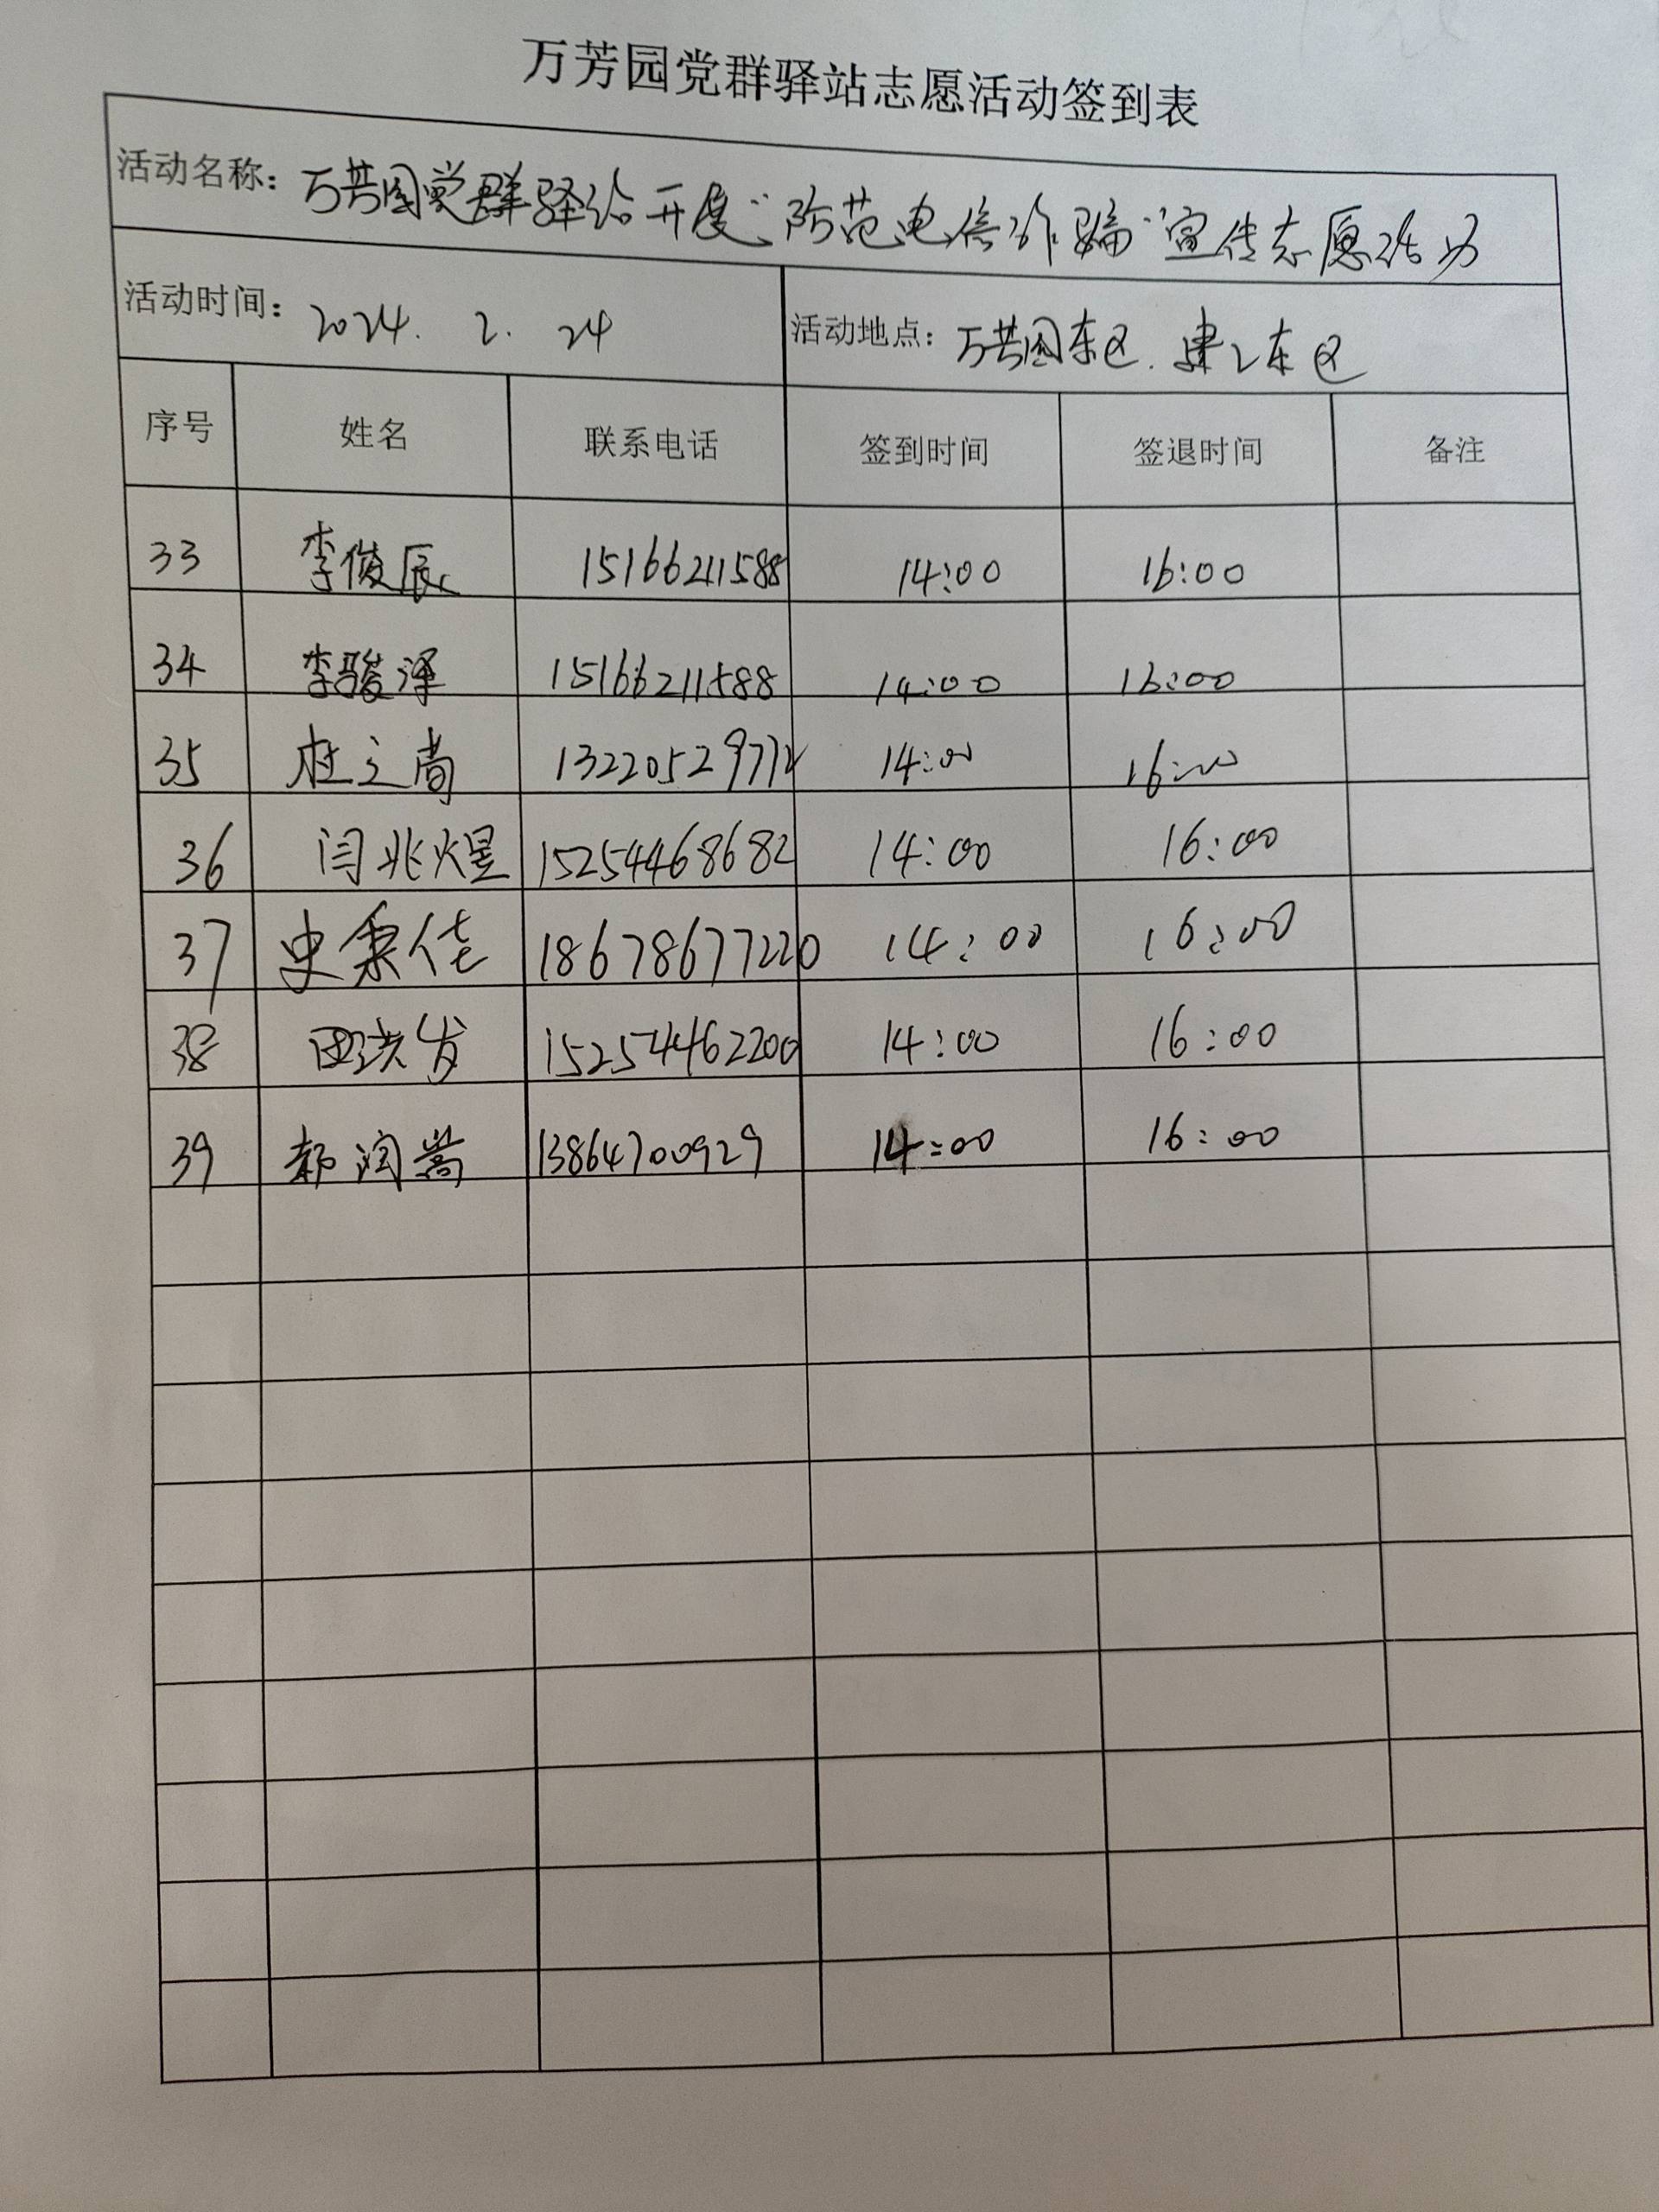 万芳园党群驿站志愿活动签到表
活动名称: 万芳园党群驿站开展“防范电信诈骗”宣传志愿活动
活动时间: 2024. 2. 24 活动地点: 万芳园东区. 建工东区
序号 姓名 联系电话 签到时间 签退时间 备注
33 李俊辰 15166211588 14:00 16:00
34 李骏泽 15166211588 14:00 16:00
35 杜之尚 13220529772 14:00 16:00
36 闫兆煜 15254468682 14:00 16:00
37 史秉佳 18678677220 14:00 16:00
38 田洪发 15254462200 14:00 16:00
39 郝润嵩 13864700929 14:00 16:00